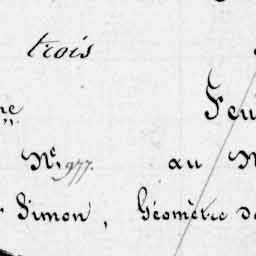 trois
Feu
N° 977. au
Simon, Géomètre de